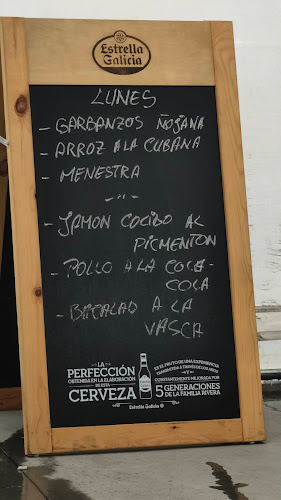 Estrella
Galicia
LUNES
- GARBANZOS ÑOJANA
- ARROZ A LA CUBANA
- MENESTRA
- " -
- JAMON COCIDO AL
PICMENTON
- POLLO A LA COCA-
COLA
- BACALAO A LA
VASCA
LA
PERFECCIÓN
OBTENIDA EN LA ELABORACIÓN
DE ESTA
CERVEZA
ES EL FRUTO DE UNA EXPERIENCIA
TRANSMITIDA A TRAVÉS DE LOS AÑOS
Y
CONSTANTEMENTE MEJORADA POR
5 GENERACIONES
DE LA FAMILIA RIVERA
Estrella Galicia